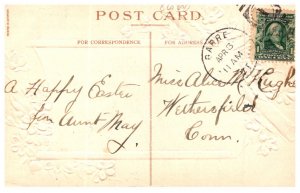 POST CARD.
FOR CORRESPONDENCE
FOR ADDRESS
BARRE
APR 3
AM
A Happy Easter
from Aunt May.
Miss Alice M. Hughes
Wethersfield
Conn.